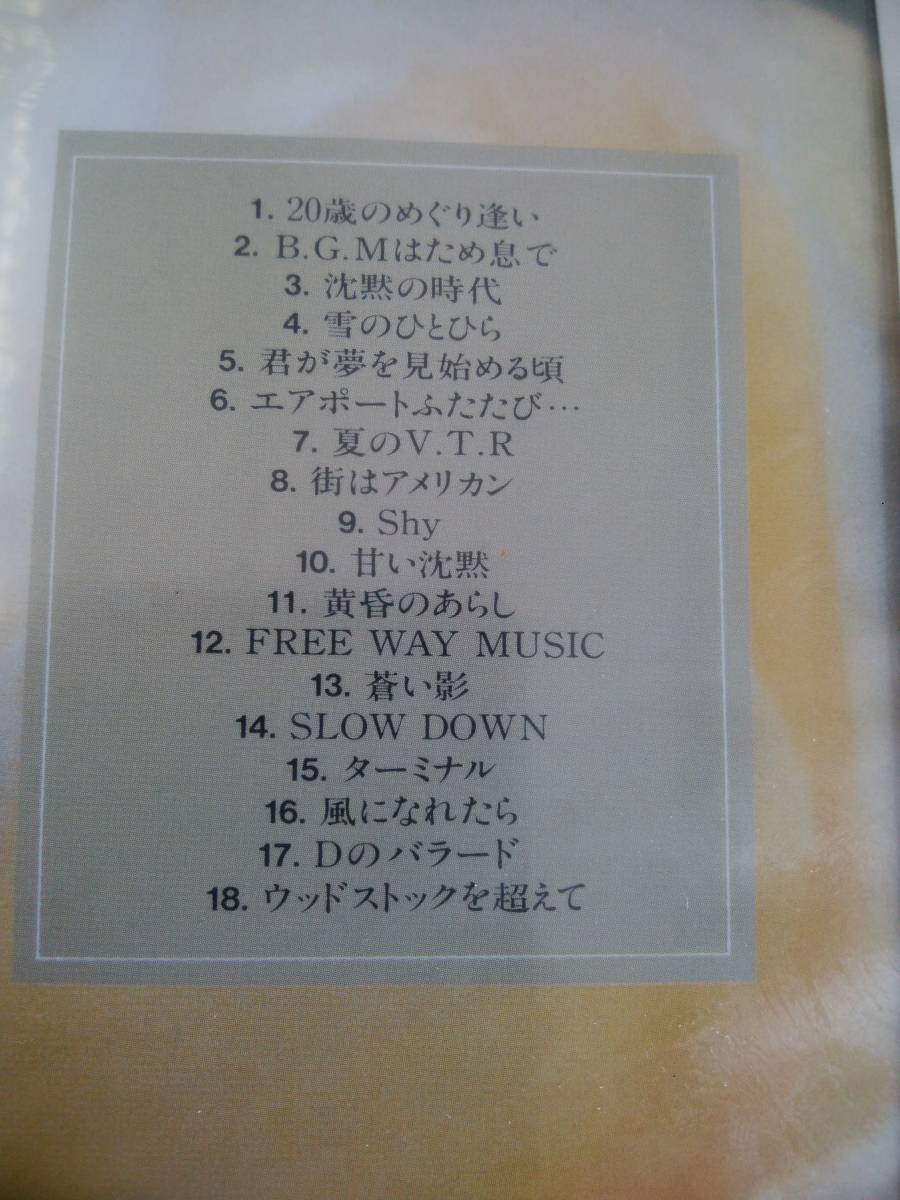 1. 20歳のめぐり逢い
2. B.G.Mはため息で
3. 沈黙の時代
4. 雪のひとひら
5. 君が夢を見始める頃
6. エアポートふたたび…
7. 夏のV.T.R
8. 街はアメリカン
9. Shy
10. 甘い沈黙
11. 黄昏のあらし
12. FREE WAY MUSIC
13. 蒼い影
14. SLOW DOWN
15. ターミナル
16. 風になれたら
17. Dのバラード
18. ウッドストックを超えて